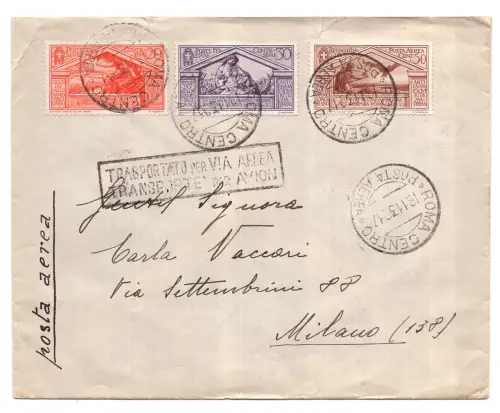 30
50
POSTA AEREA
50
ROMA CENTRO
ROMA CENTRO
ROMA CENTRO
TRASPORTATO PER VIA AEREA
TRANSPORTE' PAR AVION
ROMA CENTRO
POSTA AEREA
posta aerea
Gentil Signora
Carla Vaccari
Via Settembrini 88
Milano (138)